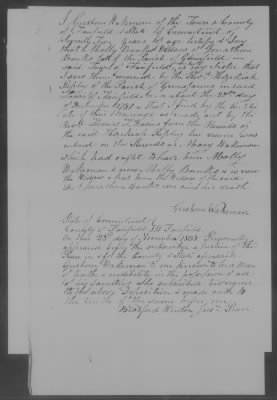 I Gershom Wakeman of the Town & County
of Fairfield & State of Connecticut of
Seventy five years of age testify & say
that Molly Banks Widow of Jonathan
Banks late of the Parish of Greenfield in
said Town of Fairfield is my sister that
I saw them married by the Revd Hezekiah
Ripley of the Parish of Greensfarms in said
Town of Fairfield on or about the 20th day
of December 1781 & that I find by the certific
ate of their Marriage as made out by the
Revd Thomas F. Davies from the Records of
the said Hezekiah Ripley her name was
entered on the Records as Mary Wakeman
which had ought to have been Molly
Wakeman & now Molly Banks & is now
the Widow & has been the Widow of the said
Jonathan Banks ever since his death
Gershom Wakeman
State of Connecticut
County of Fairfield SS Fairfield
On this 23d day of November 1838 Personally
appeared before the subscriber a Justice of the
Peace in & for the County & State aforesaid
Gershom Wakeman to me known to be a Man
of truth & credibility in the possession of
of sound mind who subscribed his name
to the above Deposition & made oath to
the truth of the same before me
Bradford Winton Just. Peace